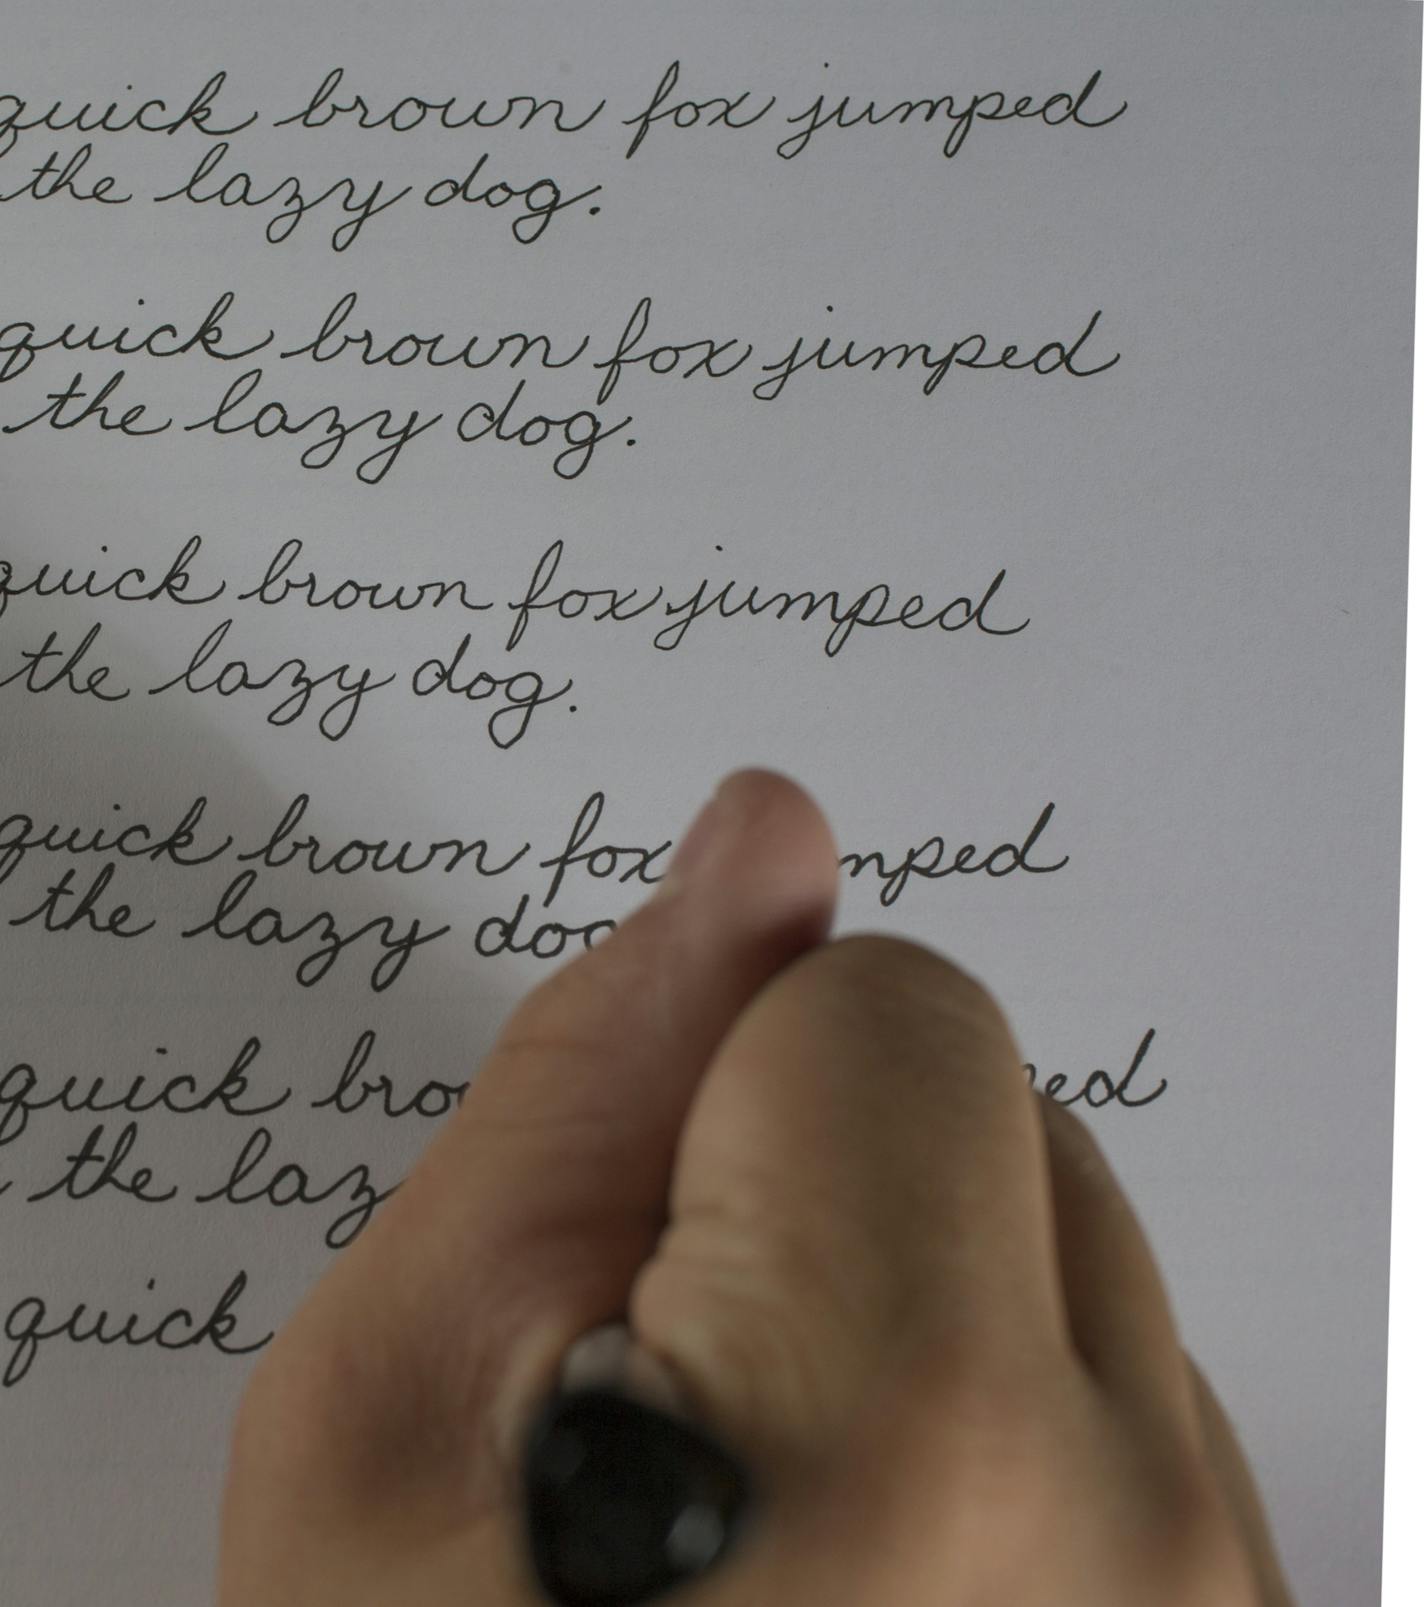 quick brown fox jumped
the lazy dog.
quick brown fox jumped
the lazy dog.
quick brown fox jumped
the lazy dog.
quick brown fox
the lazy
quick
the
quick